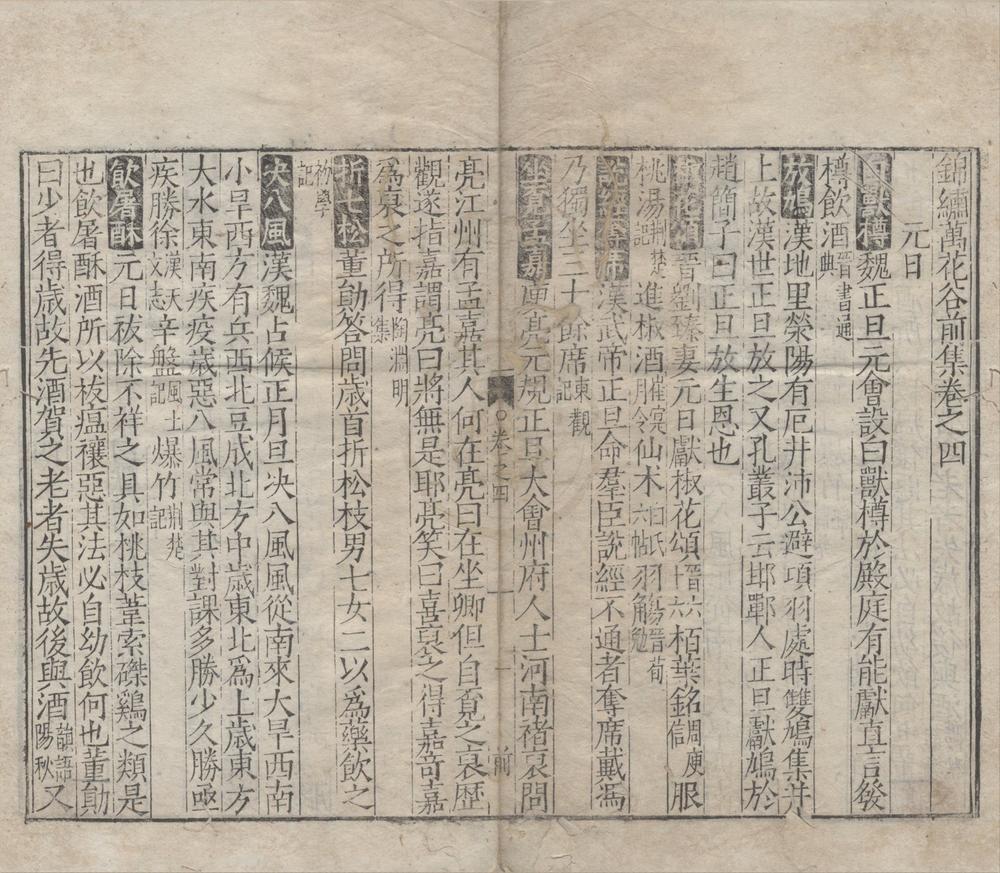 錦繡萬花谷前集卷之四
元日
白獸樽魏正旦元會設白獸樽於殿庭有能獻直言發
樽飲酒晉書通典
放鳩漢地里滎陽有厄井沛公避項羽處時雙鳩集井
上故漢世正日放之又孔叢子云邯鄲人正旦獻鳩於
趙簡子曰正旦放生恩也
椒花頌晉劉臻妻元日獻椒花頌晉六十六栢葉銘庾信調服
桃湯荆楚記進椒酒崔寔月令仙木白氏六帖羽觴晉荀勉
說經奪席漢武帝正旦命羣臣說經不通者奪席戴馮
乃獨坐五十餘席東觀記
坐覓孟嘉庾亮元規正旦大會州府人士河南褚裒問
卷之四 一 前
亮江州有孟嘉其人何在亮曰在坐卿但自覓之裒歷
觀遂指嘉謂亮曰將無是耶亮笑曰喜裒之得嘉奇嘉
為裒之所得陶淵明集
折七松董勛答問歲首折松枝男七女二以爲藥飲之
初學記
决八風漢魏占候正月旦决八風風從南來大旱西南
小旱西方有兵西北豆成北方中歲東北爲上歲東方
大水東南疾疫歲惡八風常與其對課多勝少久勝亟
疾勝徐漢天文志辛盤風土記爆竹荆楚記
飲屠酥元日祓除不祥之具如桃枝葦索磔鷄之類是
也飲屠酥酒所以祓瘟禳惡其法必自幼飲何也董勛
曰少者得歲故先酒賀之老者失歲故後與酒韻語陽秋又